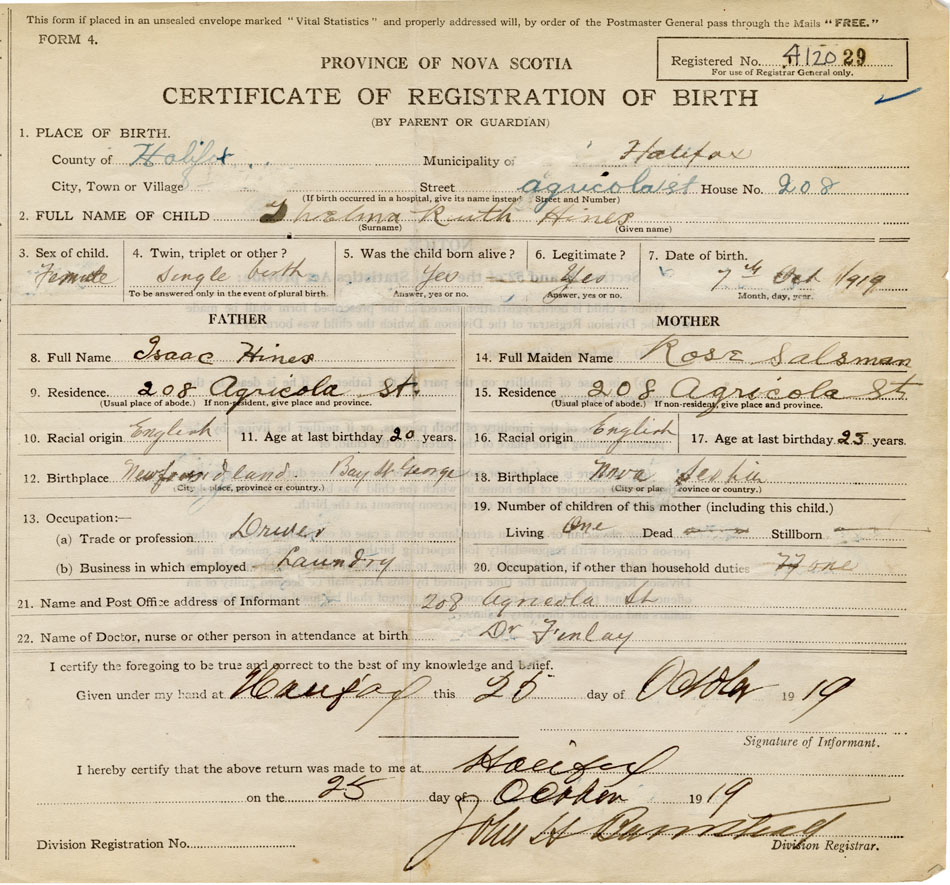 This form if placed in an unsealed envelope marked "Vital Statistics" and properly addressed will, by order of the Postmaster General pass through the Mails "FREE."
FORM 4.
Registered No. 4120 29
For use of Registrar General only.
PROVINCE OF NOVA SCOTIA
CERTIFICATE OF REGISTRATION OF BIRTH
(BY PARENT OR GUARDIAN)
1. PLACE OF BIRTH.
County of Halifax Municipality of Halifax
City, Town or Village Street agricola st House No. 208
(If birth occurred in a hospital, give its name instead Street and Number)
2. FULL NAME OF CHILD Thelma Ruth Hines
(Surname) (Given name)
3. Sex of child. 4. Twin, triplet or other? 5. Was the child born alive? 6. Legitimate? 7. Date of birth.
Female Single birth Yes Yes 7th Oct 1919
To be answered only in the event of plural birth. Answer, yes or no. Answer, yes or no. Month, day, year.
FATHER MOTHER
8. Full Name Isaac Hines 14. Full Maiden Name Rose Salsman
9. Residence. 208 Agricola St. 15. Residence 208 Agricola St
(Usual place of abode.) If non-resident, give place and province. (Usual place of abode.) If non-resident, give place and province.
10. Racial origin English 11. Age at last birthday 20 years. 16. Racial origin English 17. Age at last birthday 23 years.
12. Birthplace Newfoundland. Bay St George 18. Birthplace Nova Scotia
(City place, province or country.) (City or plac rovince or country.)
13. Occupation:— 19. Number of children of this mother (including this child.)
(a) Trade or profession Driver Living One Dead Stillborn
(b) Business in which employed Laundry 20. Occupation, if other than household duties none
21. Name and Post Office address of Informant 208 Agricola St
22. Name of Doctor, nurse or other person in attendance at birth Dr Finlay
I certify the foregoing to be true and correct to the best of my knowledge and belief.
Given under my hand at Halifax this 25 day of October 1919
Signature of Informant.
I hereby certify that the above return was made to me at Halifax
on the 25 day of October 1919
John H
Division Registration No. Division Registrar.